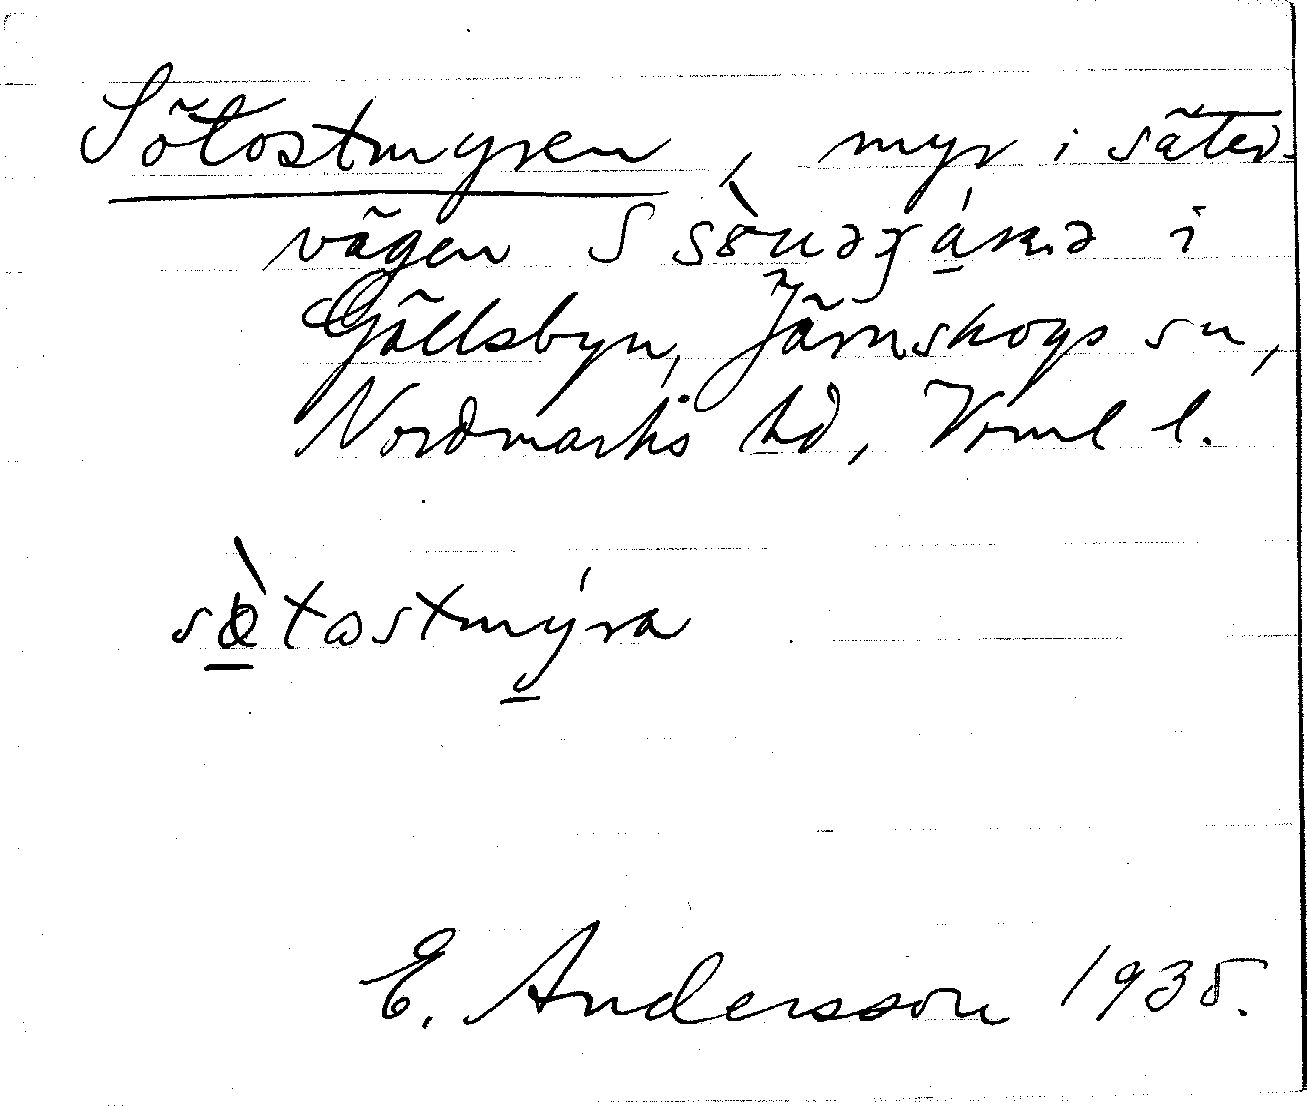 Sötostmyren, myr i säter-
vägen S i
Gällsbyn, Järnskogs sn,
Nordmarks hd, Vrml l.
sø̀tostmýra
E. Andersson 1935.